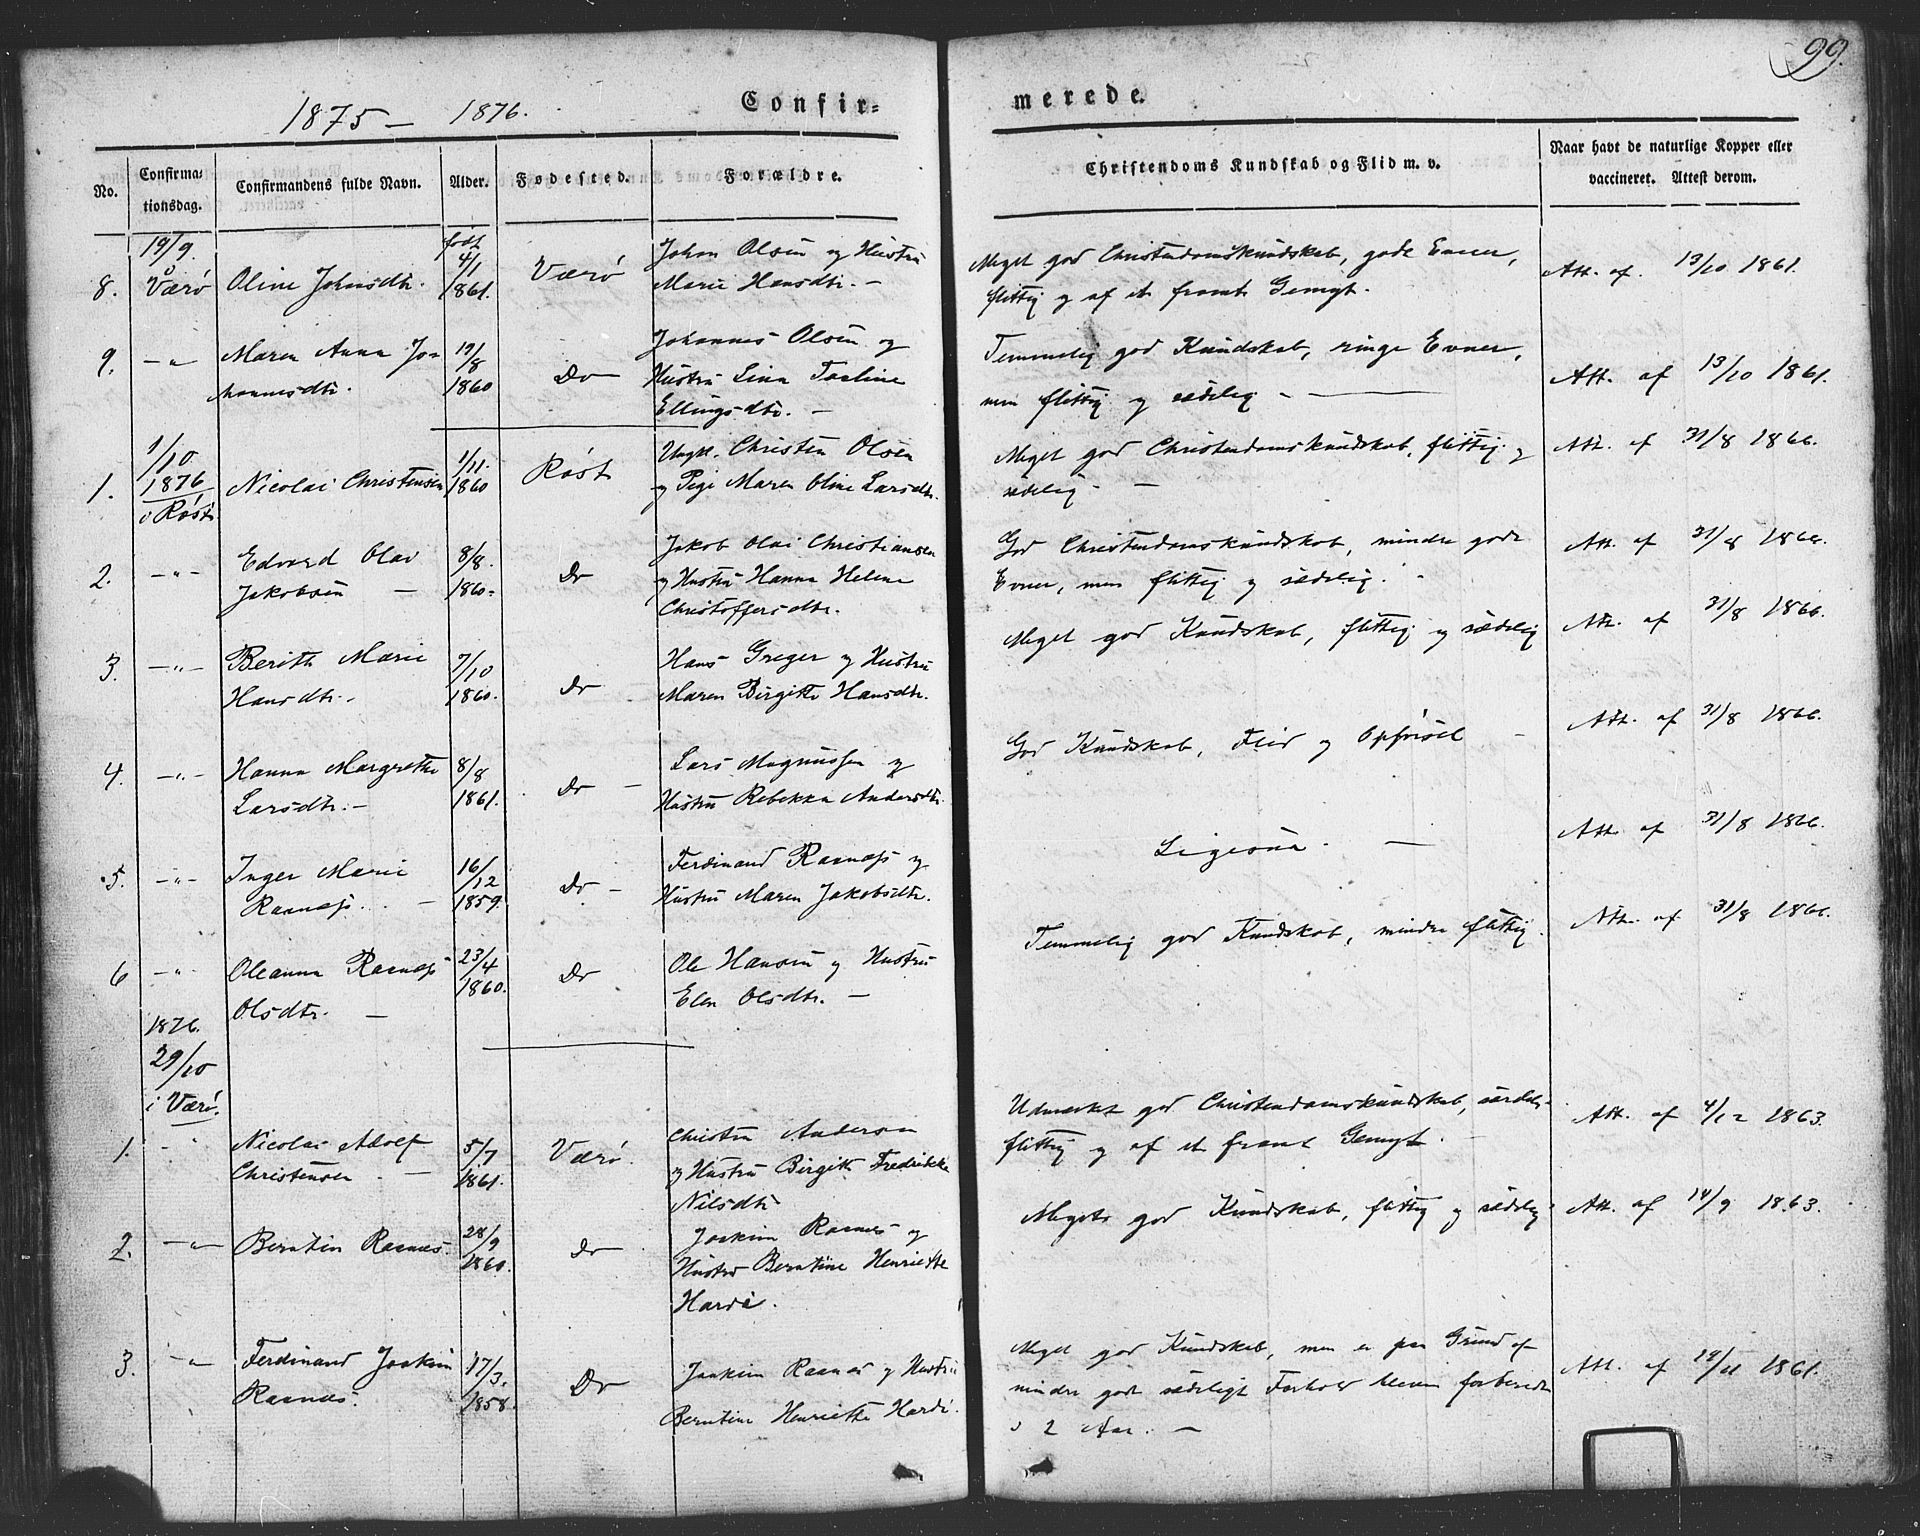 99.
1875 – 1876.
Confir=
merede.
No.
Confirma-
tionsdag.
Confirmandens fulde Navn.
Alder.
Fødested.
Forældre.
Christendoms Kundskab og Flid m. v.
Naar havt de naturlige Kopper eller
vaccineret. Attest derom.
8.
19/9.
Værø
Oline Johnsdtr.
født
4/1
1861.
Værø
Johan Olsen og Hustru
Marie Hansdtr. –
Meget god Christendomskundskab, gode Evner,
flittig og af et fromt Gemyt.
Att. af 13/10 1861.
9.
–"–
Maren Anna Jo-
hannesdtr.
19/8
1860
Do
Johannes Olsen og
Hustru Lina
Ellingsdtr. –
Temmelig god Kundskab, ringe Evner,
men flittig og sædelig –
Att. af 13/10 1861.
1.
1/10
1876
i Røst
Nicolai Christensen
1/11.
1860
Røst
Ungk. Christen Olsen
og Pige Maren Oline Larsdtr.
Meget god Christendomskundskab, flittig og
sædelig –
Att. af 31/8 1866.
2.
–"–
Edvard Olai
Jakobsen –
8/8.
1860.
Do
Jakob Olai Christiansen
og Hustru Hanna Helene
Christoffersdtr.
God Christendomskundskab, mindre gode
Evner, men flittig og sædelig.
Att. af 31/8 1866.
3.
–"–
Berith Marie
Hansdtr.
7/10
1860.
Do
Hans Greger og Hustru
Maren Birgitte Hansdtr.
Meget god Kundskab, flittig og sædelig
Att. af 31/8 1866.
4.
–"–
Hanna Margrethe
Larsdtr. –
8/8
1861.
Do –
Lars Magnussen og
Hustru Rebekka Andersdtr.
God Kundskab, Flid og Opførsel –
Att. af 31/8 1866.
5.
–"–
Inger Marie
Rasnæs. –
16/12
1859.
Do –
Ferdinand Rasnæs og
Hustru Maren Jakobsdtr.
Ligesaa. –
Att. af 31/8 1866.
6
–"–
Oleanna Rasnæs
Olsdtr. –
23/4
1860.
Do
Ole Hansen og Hustru
Elen Olsdtr. –
Temmelig god Kundskab, mindre flittig.
Att. af 31/8 1866.
1876.
29/10
i Værø.
1.
Nicolai Adolf
Christensen –
5/7
1861.
Værø.
Christen Andersen
og Hustru Birgitte Fredrikke
Nilsdtr
Udmærket god Christendomskundskab, særdeles
flittig og af et fromt Gemyt. –
Att. af 4/12 1863.
2.
–"–
Berntin Rasnæs.
28/9
1860.
Do
Joakim Rasnæs og
Hustru Berntine Henriette
Hardi.
Meget god Kundskab, flittig og sædelig
Att. af 14/9 1863.
3.
–"–
Ferdinand Joakim
Rasnæs.
17/3.
1858.
Do
Joakim Rasnæs og Hustru
Berntine Henriette Hardi.
Meget god Kundskab, men er paa Grund af
mindre godt sædeligt Forhold bleven forberedt
i 2 Aar. –
Att. af 1861.